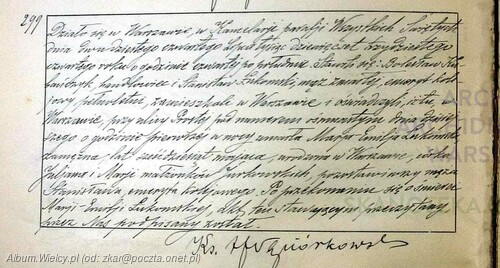 299
Działo się w Warszawie, w Kancelarji parafji Wszystkich Świętych
dnia dwudziestego czwartego tysiąc dziewięćset trzydziestego
czwartego roku o godzinie czwartej po południu. Stawili się: Bolesław
handlowiec i Stanisław Łukomski, mąż zmarłej, emeryt kole-
jowy pełnoletni, zamieszkali w Warszawie i oświadczyli, iż tu, w
Warszawie, przy ulicy Prostej pod numerem ósmym dnia dzisiej-
szego o godzinie pierwszej w nocy umarła Marja Emilja Łukomska
zamężna, lat mająca, urodzona w Warszawie, córka
Juljana i Marji małżonków Jackowskich, pozostawiwszy męża
Stanisława, emeryta kolejowego. Po przekonaniu się o śmierci
Marji-Emilji Łukomskiej, akt ten stawającym przeczytany
przez Nas podpisany został.
Ks.
ARC
ARCHIDIE
WARSZ
SKANO
Album.Wielcy.pl (od: zkar@poczta.onet.pl)